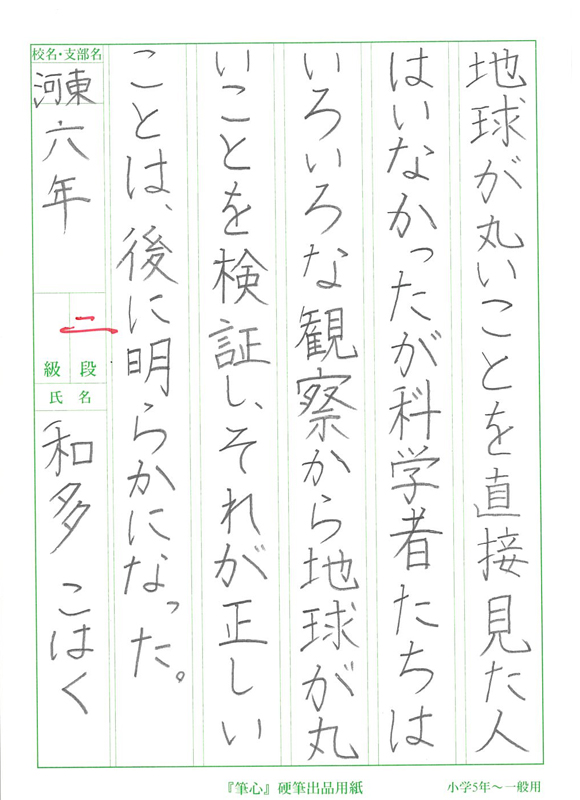 地球が丸いことを直接見た人
はいなかったが科学者たちは
いろいろな観察から地球が丸
いことを検証し、それが正しい
ことは、後に明らかになった。
校名・支部名
河東 六年
二
級 段
氏名
和多 こはく
『筆心』硬筆出品用紙
小学5年～一般用